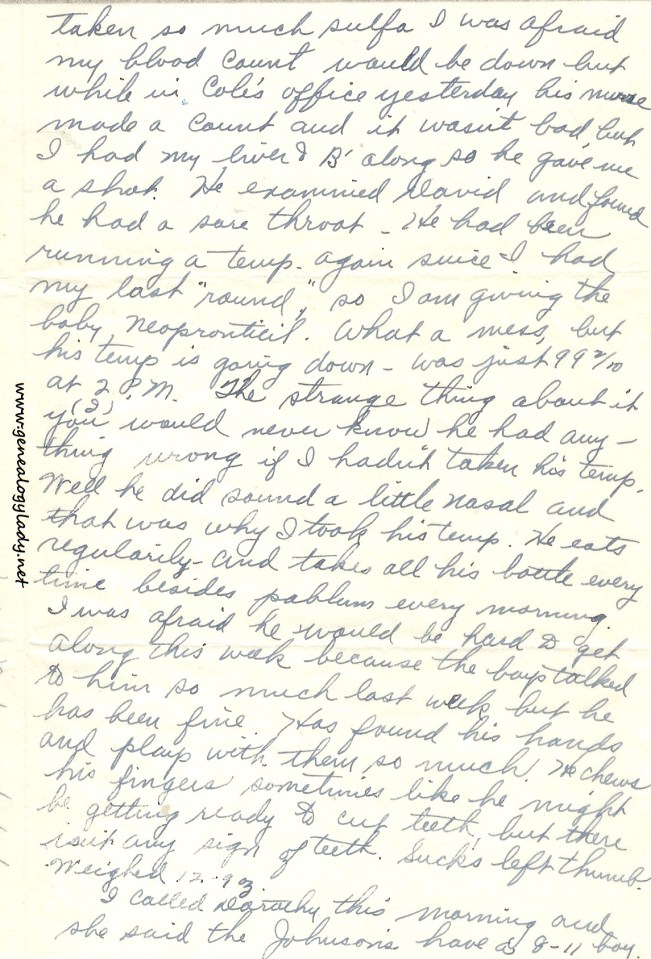 taken so much sulfa I was afraid
my blood count would be down but
while in Cole's office yesterday his nurse
made a count and it wasn't bad, but
I had my liver & B' along so he gave me
a shot. He examined David and found
he had a sore throat - He had been
running a temp. again since I had
my last "round," so I am giving the
baby neopronticil. What a mess, but
his temp is going down - was just 99 2/10
at 2 P.M. The strange thing about it
(3)
you would never know he had any-
thing wrong if I hadn't taken his temp.
Well he did sound a little nasal and
that was why I took his temp. He eats
regularily - and takes all his bottle every
time besides pablum every morning.
I was afraid he would be hard to get
along this week because the boys talked
to him so much last week but he
has been fine. Has found his hands
and plays with them so much. He chews
his fingers sometimes like he might
be getting ready to cut teeth, but there
isn't any sign of teeth. Sucks left thumb.
Weighed 12-9 3/4.
I called Dorothy this morning and
she said the Johnsons have a 8-11 boy.
www.genealogylady.net